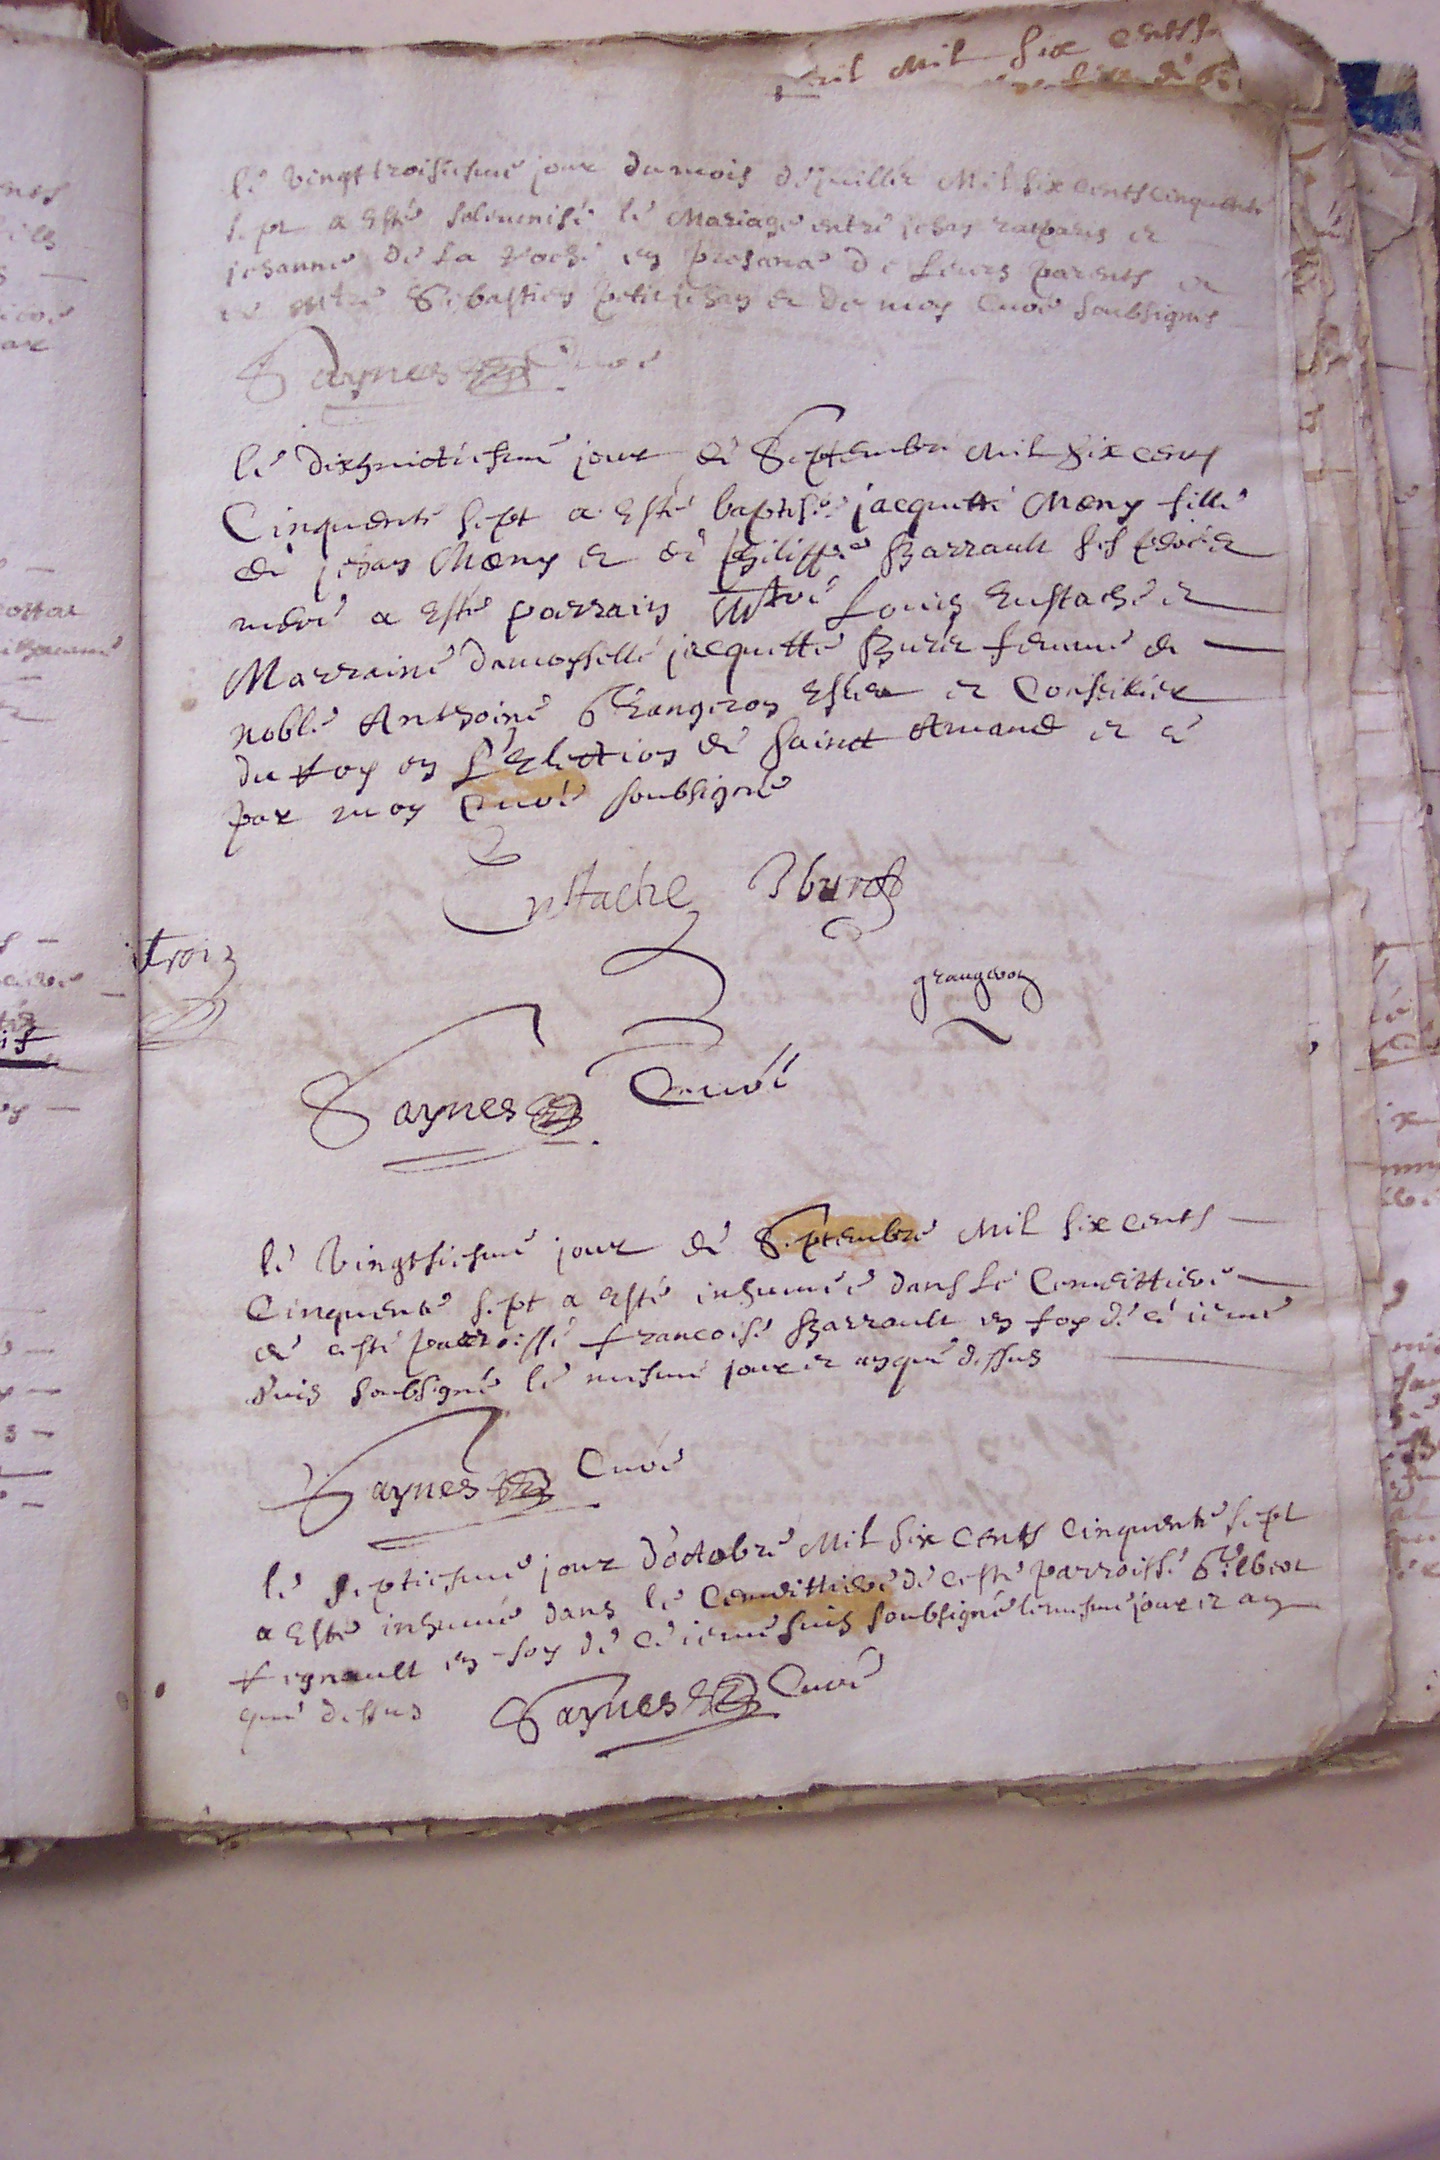 Mil six cents
le vingt troisiesme jour du mois de juillet Mil six cents cinquante
sept a esté solemnisé le Mariage entre jehan et
jehanne de La roche en presance de Leurs parents et
de Mtre Sebastien petitjehan et de moy Curé soubsignes
Saynes Curé
le dixhuictiesme jour de Septembre Mil six cents
Cinquente sept a esté baptisée jacquette Mæny fille
de jehan Mæny et de philippe Barrault ses pere et
mere a esté parrain Mtre Louis Eustache et
Marraine damoyselle jacquette Buret femme de
noble Anthoine Grangeron Eslieu et Conseiller
du Roy en L'Election de Sainct Amand et ce
par moy Curé soubsigné
Eustache J buret
trois
grangeron
Saynes Curé
le vingtiesme jour de Septembre Mil six cents
Cinquente sept a esté inhumée dans Le Cemittiere
de ceste parroisse francoise Barrault en foy de ce ie me
suis soubsigné le mesme jour et an que dessus
Saynes Curé
le septiesme jour d'octobre Mil six cents cinquente sept
a esté inhumé dans le Cemittiere de ceste parroisse Gilbert
regnault en foy de ce ie me suis soubsigné le mesme jour et an
que dessus Saynes Curé